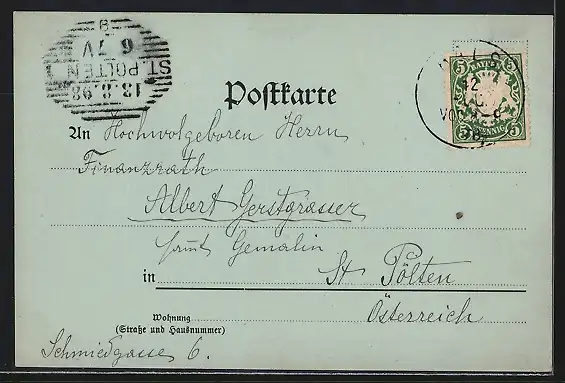 ST. PÖLTEN 1
13.8.98
6.7V
8
BAYERN
5 5
PFENNIG
5 5
12
VOR. 8-9
Postkarte
An Hochwolgeboren Herrn
Finanzrath
Albert Gerstgrasser
samt Gemalin
in St Pölten
Österreich
Wohnung
(Straße und Hausnummer)
Schmiedgasse 6.